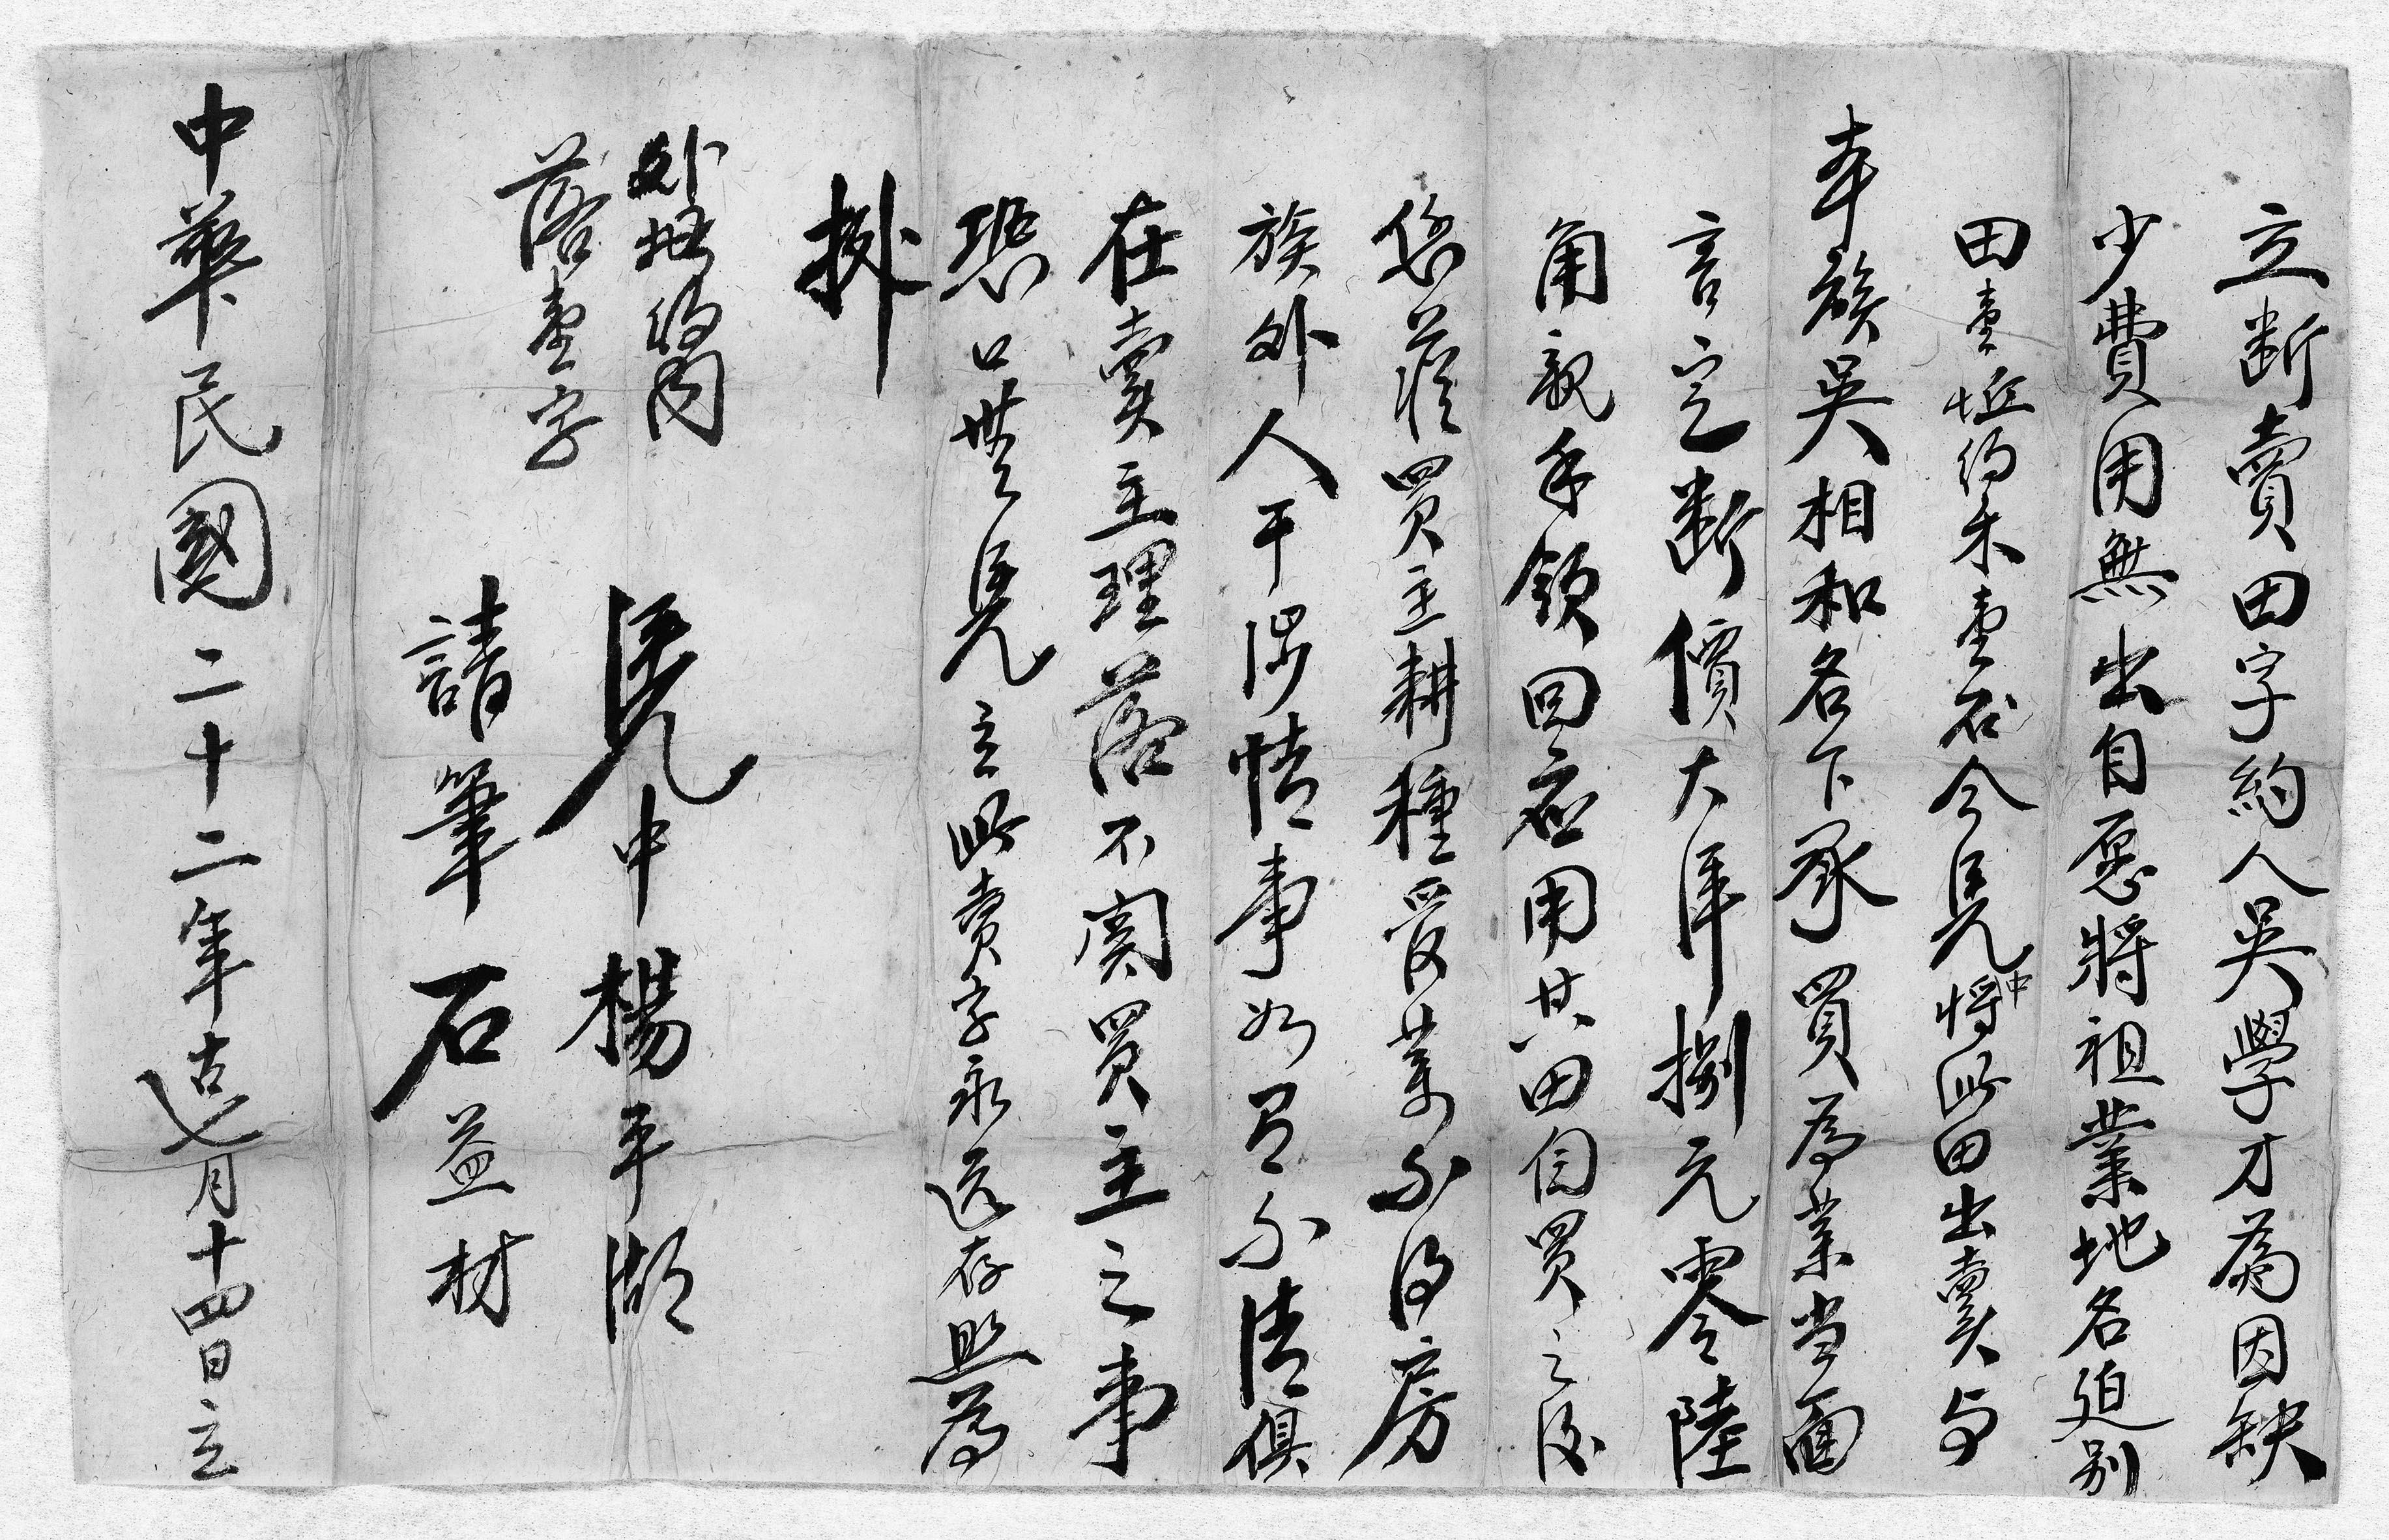 立断賣田字約人吳學才為因缺
少費用無出自愿將祖業地名廹别
田壹坵約禾壹石今凭中將此田出賣与
本族吳相和名下承買為業当面
言定断價大洋捌元零陸
角親手領回应用其田自買之後
您從買主耕種管業不得房
族外人干涉情事如有不清俱
在賣主理落不関買主之事
恐口無凭立此賣字永远存照為
拠
外批約內
落壹字
凭中楊平湖
請筆石益材
中華民國二十二年古造七月十四日立